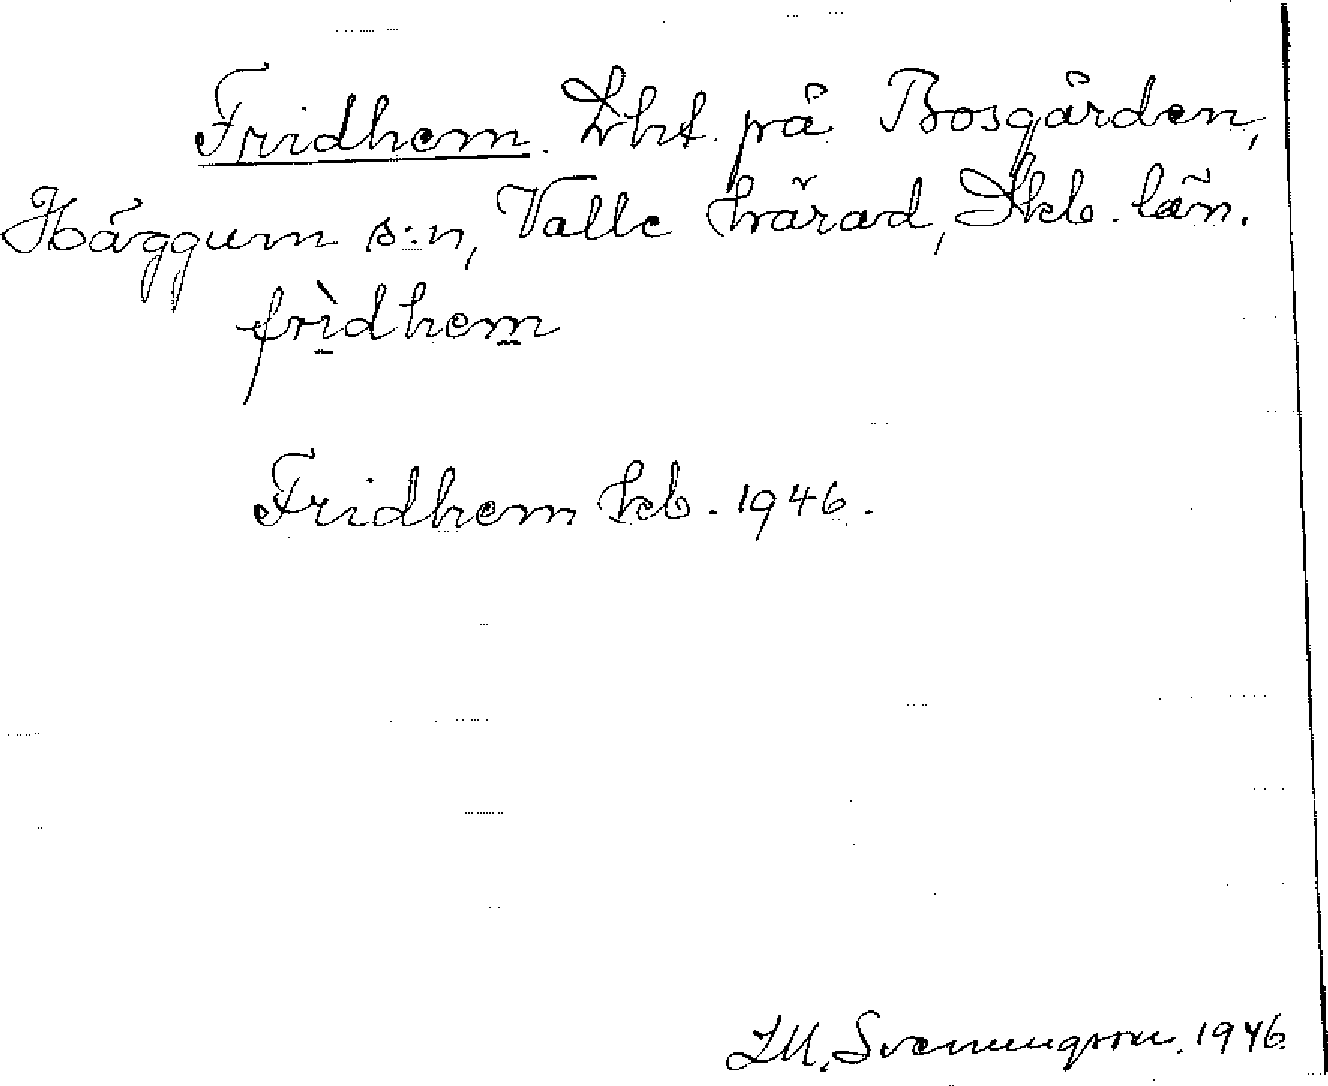 Fridhem. Lht. på Bosgården,
Häggum s:n, Valle härad, Skb. län.
frìdhem
Fridhem kb. 1946.
Svenungsson. 1946